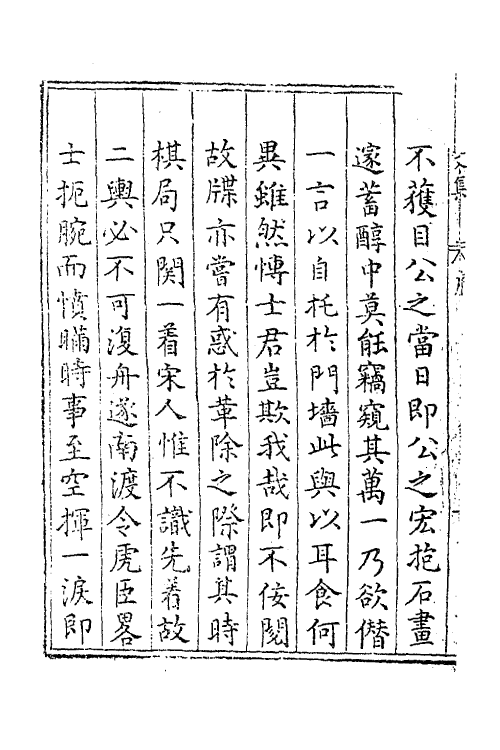 不獲目公之當日即公之宏抱石畫
邃蓄醇中莫能竊窺其萬一乃欲僭
一言以自托於門墻此與以耳食何
異雖然愽士君豈欺我哉即不佞閱
故牒亦嘗有惑於革除之際謂其時
棋局只関一着宋人惟不識先着故
二輿必不可復舟遂南渡令虎臣畧
士扼腕而憤瞞時事至空揮一淚即